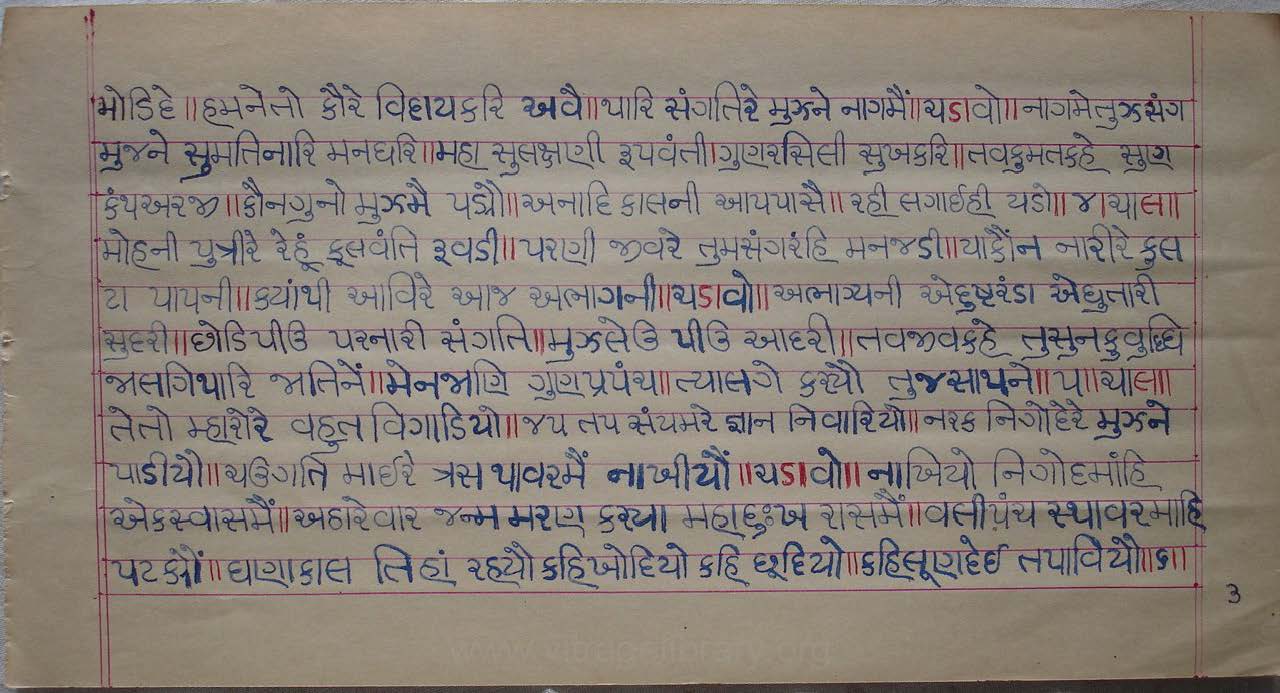 મોડિહે॥હમનેતો કૌરે વિહાયકરિ અવૈ॥થારિ સંગતિરે મુઝને નાગમૈં॥ચડાવો॥નાગમેતુઝસંગ
મુજને સુમતિનારિ મનધરિ॥મહા સુલક્ષણી રૂપવંતી॥ગુણરસિલી સુખકરિ॥તવકુમતકહે સુણ
કંથઅરજ॥કૌનગુનો મુઝમૈ પડ્યો॥અનાદિ કાલની આપપાસૈ॥રહી લગાઈહી યડો॥૪॥ચાલ॥
મોહની પુત્રીરે રેહૂં કૂલવંતિ રૂવડી॥પરણી જીવરે તુમસંગરંહિ મનજડી॥યાકૌંન નારીરે કુલ
ટા પાપની॥કયાંથી આવિરે આજ અભાગની॥ચડાવો॥અભાગ્યની એદુષ્ટરંડા એધુતારી
સુદરી॥છોડિપીઉ પરનારી સંગતિ॥મુઝલેઉ પીઉ આદરી॥તવજીવકહે તુસુનકુવુધ્ધિ
જાલગિથારિ જાતિનેં॥મેનજાણિ ગુણપ્રપંચ॥ત્યાલગે કર્યૌ તુજસાથને॥૫॥ચાલ॥
તેતો મ્હારોરે વહુત વિગાડિયો॥જપ તપ સંયમરે જ્ઞાન નિવારિયો॥નરક નિગોદેરે મુઝને
પાડીયો॥ચઉગતિ માઈરે ત્રસ થાવરમૈં નાખીયૌં॥ચડાવો॥નાખિયો નિગોદમાંહિ
એકસ્વાસમૈં॥અઠારેવાર જન્મ મરણ કર્યા મહાદુઃખ રાસમૈં॥વલીપંચ સ્થાવરમાહિ
પટક્યૌં॥ઘણાકાલ તિહાં રહયૌ કહિખોદિયો કહિ છૂદિયો॥કહિલૂણદેઈ તપાવિયૌ॥૬॥
3
www.vitrag-library.org